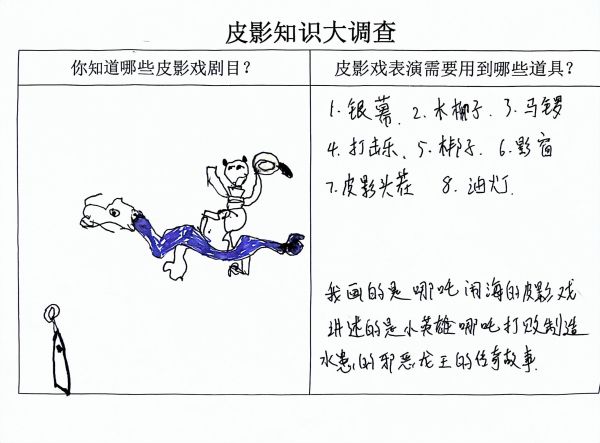 皮影知识大调查
你知道哪些皮影戏剧目？
皮影戏表演需要用到哪些道具？
1.银幕、2.木梆子、3.马锣
4.打击乐、5.梆子、6.影窗
7.皮影头茬 8.油灯.
我画的是哪吒闹海的皮影戏
讲述的是小英雄哪吒打败制造
水患的邪恶龙王的传奇故事.